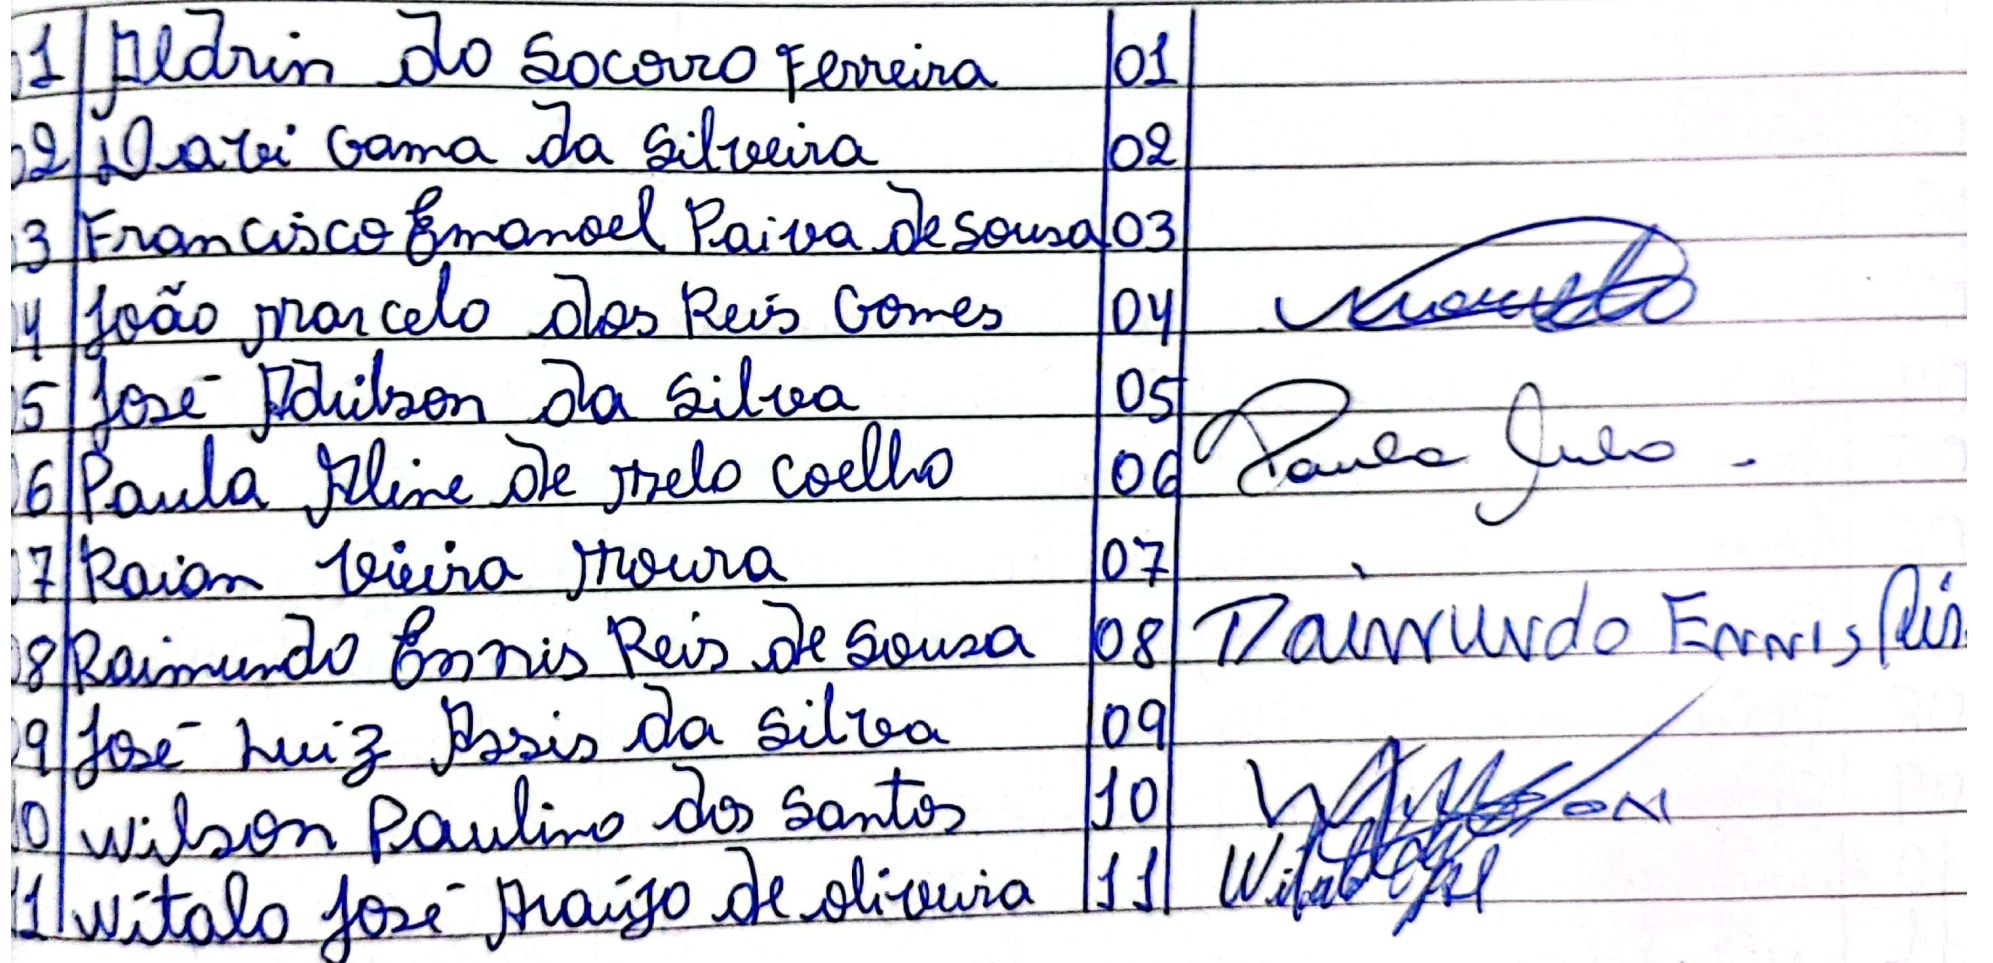 01 Aldrin do Socorro Ferreira 01
02 Davi Gama da Silveira 02
03 Francisco Emanoel Paiva de Sousa 03
04 João Marcelo dos Reis Gomes 04
05 José Adeilson da Silva 05
06 Paula Aline de Melo Coelho 06 Paula
07 Raian Vieira Moura 07
08 Raimundo Ennis Reis de Sousa 08 Raimundo Ennis Reis
09 José Luiz Assis da Silva 09
10 Wilson Paulino dos Santos 10
11 Witalo José Araújo de Oliveira 11